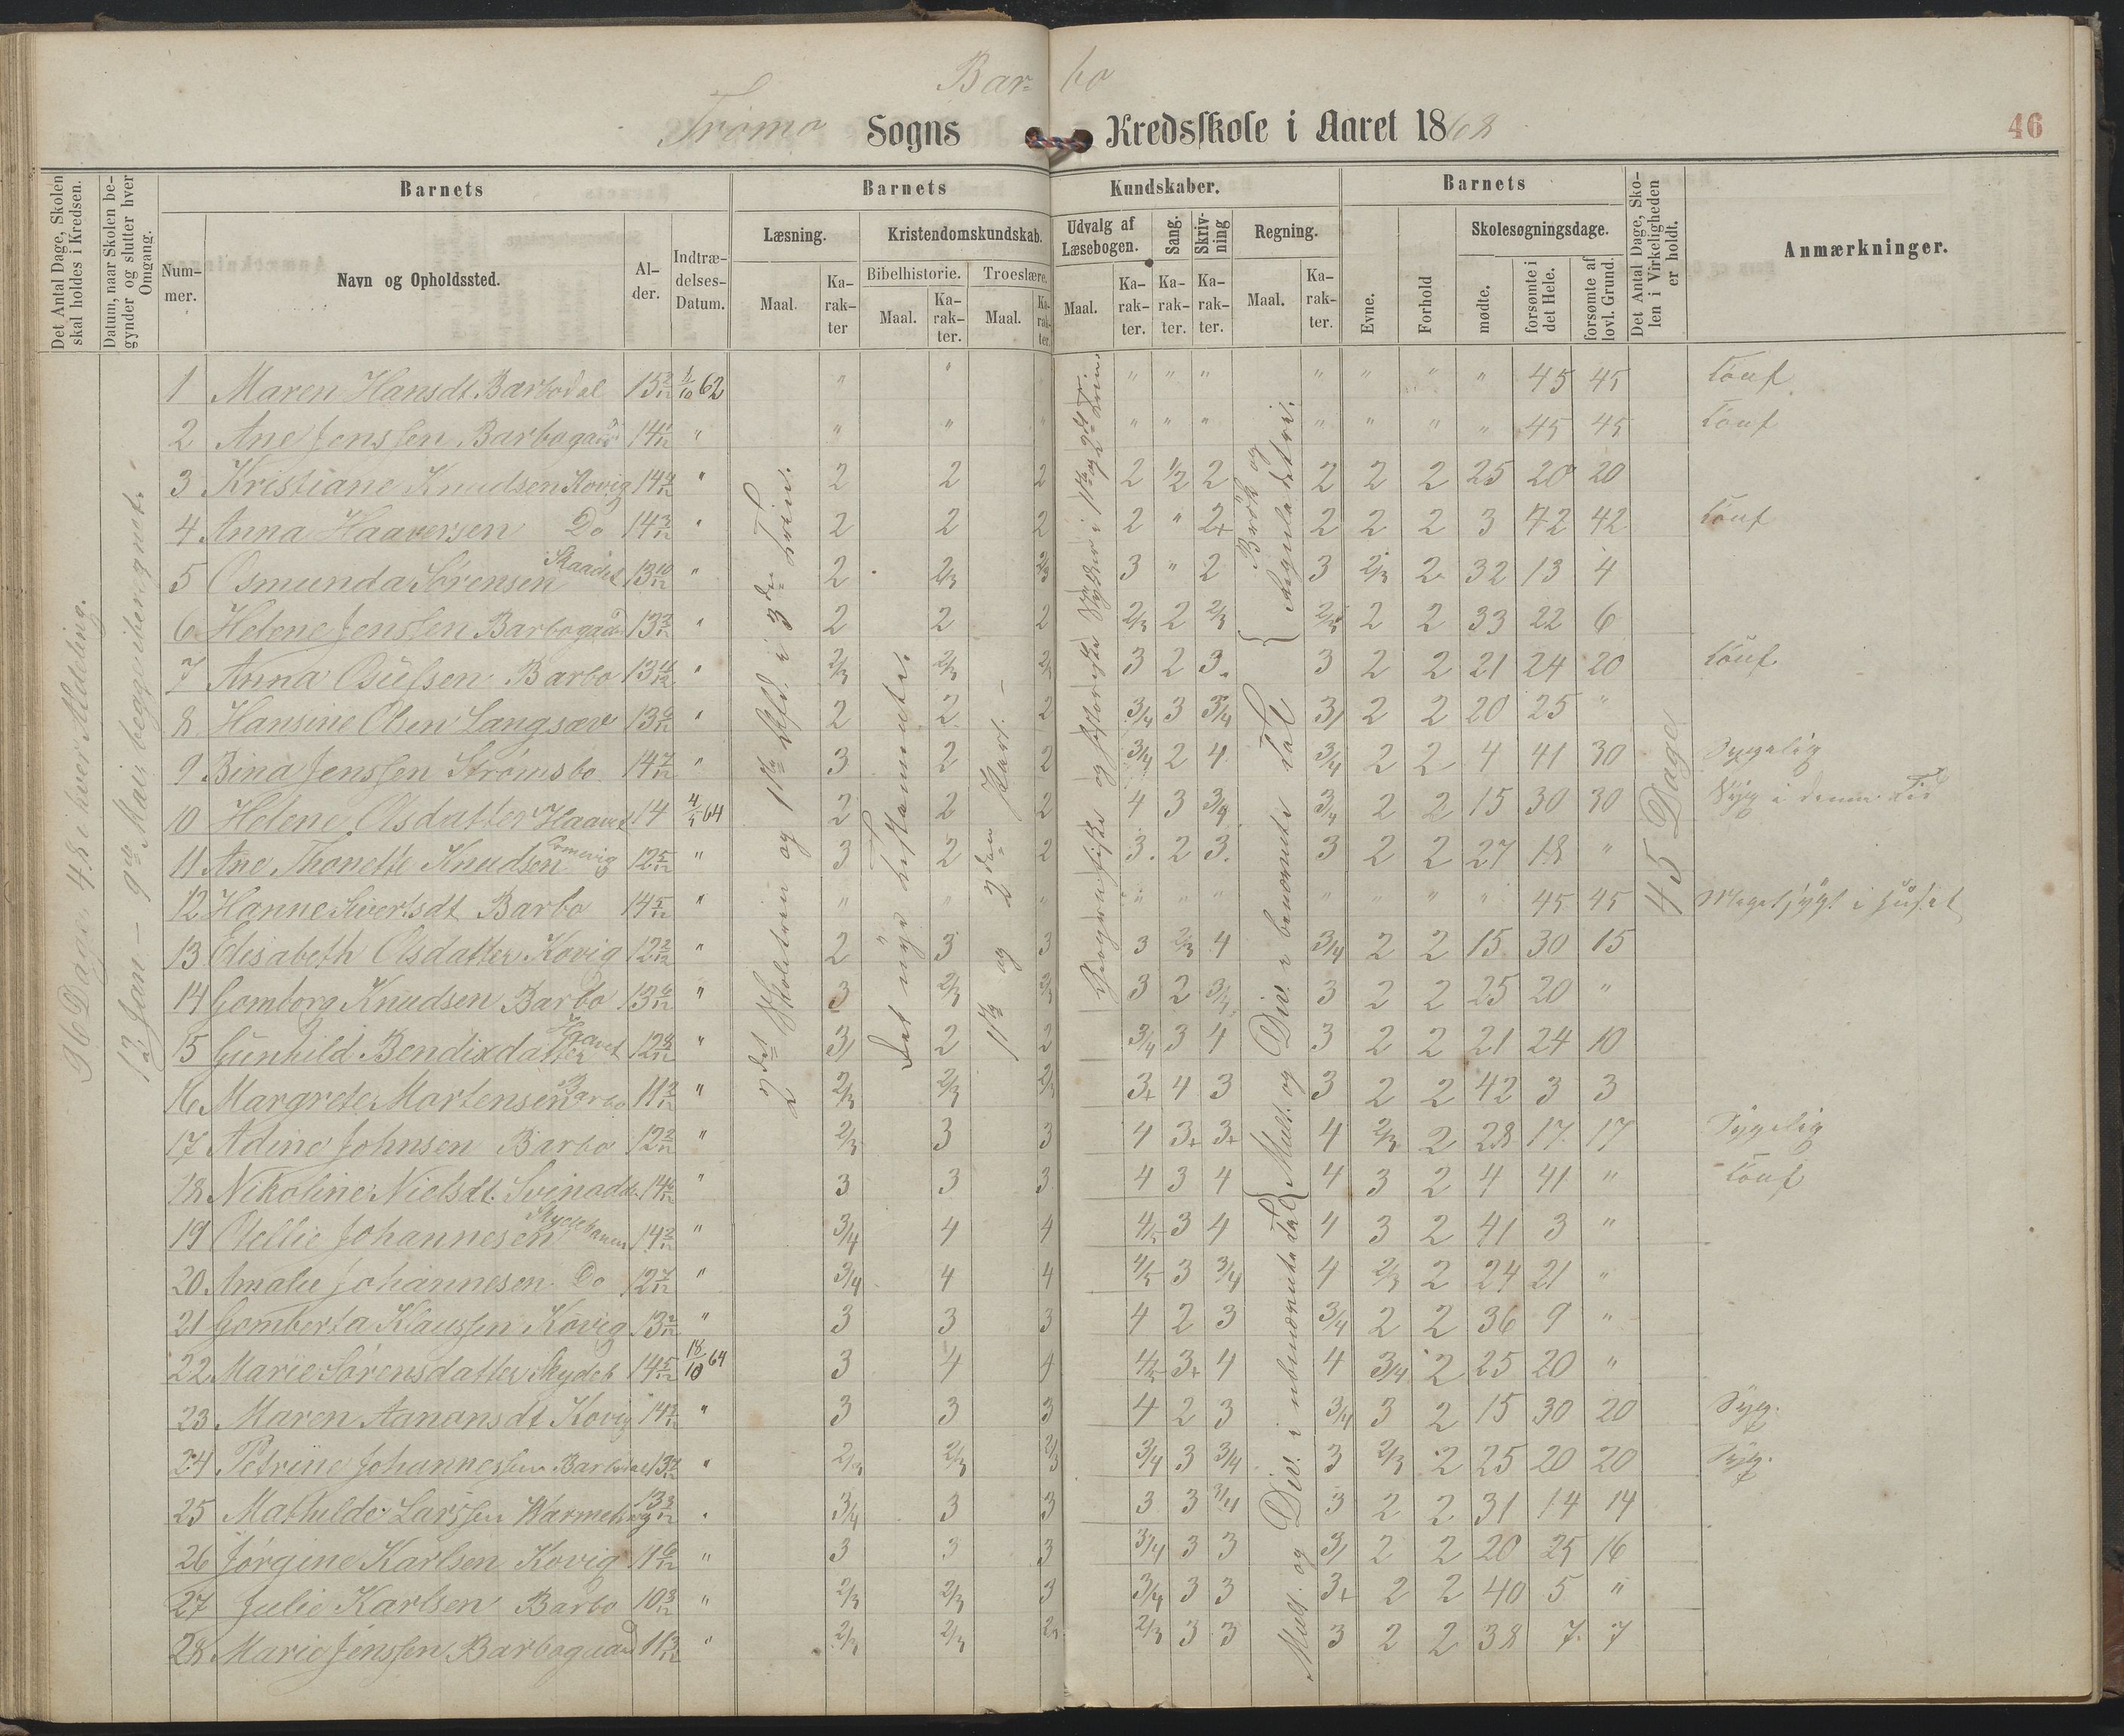 Bar- bo
Tromø Sogns Kredsskole i Aaret 1868
46
Det Antal Dage, Skolen skal holdes i Kredsen.
Datum, naar Skolen begynder og slutter hver Omgang.
Barnets
Barnets Kundskaber.
Barnets
Det Antal Dage, Skolen i Virkeligheden er holdt.
Anmærkninger.
Nummer.
Navn og Opholdssted.
Alder.
Indtrædelses-Datum.
Læsning.
Kristendomskundskab.
Udvalg af Læsebogen.
Sang.
Skrivning
Regning.
Evne.
Forhold
Skolesøgningsdage.
Bibelhistorie.
Troeslære.
Maal.
Karakter
Maal.
Karakter.
Maal.
Karakter.
Maal.
Karakter.
Karakter.
Karakter.
Maal.
Karakter.
mødte.
forsømte i det Hele.
forsømte af lovl. Grund.
96 Dage, 48 i hver Afdeling.
13 Jan – 9 Mai, begge iberegnet.
2det Skoletrin og 1ste Afd. i 3die Trin.
Det nye Testamente.
1ste og 2den Part.
Geografiske og historiske Stykker i 1ste og 2det Trin.
Brøk og Regula detri.
Mult. og Div. i benævnte Tal
Mult. og Div. i ubenævnte Tal
45 Dage
1 Maren Hansdt. Barbodal 13 3/12 1/10 62 " " " " " " " " " 45 45
2 Ane Jenssen Barbogaard " " " " " " " " " " 45 45
3 Kristiane Knudsen Kovig 14 " 2 2 2 2 1/2 2 2 2 2 25 20 20
4 Anna Haaversen Do 14 " 2 2 2 2 " 2+ 2 2 2 3 42 42
5 Osmunda Sørensen 13 10/12 " 2 2/3 2/3 3 " 2 3 2/3 2 32 13 4
6 Helene Jenssen Barbogaard 13 " 2 2 2 2/3 2 2/3 2/3 2 2 33 22 6
7 Anna Osufsen Barbo 13 " 2/3 2/3 2/3 3 2 3. 3 2 2 21 24 20
8 Hansine Olsen Langsæv 13 " 2 2 2 3/4 3 3/4 3/ 2 2 20 25 "
9 Bina Jenssen Strømsbo 14 7/12 " 3 2 2 3/4 2 4 3/4 2 2 4 41 30 Sygelig
10 Helene Olsdatter Haavet 14 64 2 2 2 4 3 3/4 2 2 15 30 30 Syg i denne Tid
11 Ane Thonette Knudsen 12 5/12 " 3 2 2 3. 2 3. 3 2 2 27 18 "
12 Hanne Sivertsdt Barbo 14 5/12 " " " " " " " " " " " 45 45 Meget sygt i Huset
13 Elisabeth Olsdatter Kovig 12 2/12 " 2 3 3 3 2/3 4 3/4 2 2 15 30 15
14 Gomborg Knudsen Barbo 13 " 3 2/3 2/3 3 2 3/4 3 2 2 25 20 "
15 Gunhild Bendixdatter Haavet 12 8/12 " 3/ 2 2 3/4 3 4 3 2 2 21 24 10
16 Margrete Mortensen Barbo 11 " 2/3 2/3 2/3 3+ 4 3 3 2 2 42 3 3
17 Adine Johnsen Barbo 12 2/12 " 2/3 3 3 4 3+ 3+ 4 2/3 2 28 17 17 Sygelig
18 Nikoline Nielsdt. Svinodd. 14 " 3 3 3 4 3 4 4 3 2 4 41 "
19 Olellie Johannesen 14 " 3/4 4 4 4/5 3 4 4 3 2 41 3 "
20 Amalie Johannesen Do 12 7/12 " 3/4 4 4 4/5 3 3/4 4 2/3 2 24 21 "
21 Gomberta Klaussen Kovig 13 2/12 " 3 3 3 4 2 3 3/4 2 2 36 9 "
22 Marie Sørensdatter Skydeb 14 5/12 18/10 64 3 4 4 4/5 3+ 4 4 3/4 2 25 20 "
23 Maren Aanansdt Kovig 14 " 3 3 3 4 2 3 3/4 3 2 15 30 20 Syg.
24 Petrine Johannessen Barbodal 13 " 2/3 2/3 2/3 3/4 3 3/4 3 2/3 2 25 20 20 Syg.
25 Mathilde Larssen 13 " 3/4 3 3 3 3 3/4 3 2 2 31 14 14
26 Jørgine Karlsen Kovig 11 6/12 " 3 3 3 3/4 3 3 3/ 2 2 20 25 16
27 Julie Karlsen Barbo 10 " 2/3 2/3 3 3/4 3 3 3+ 2 2 40 5 "
28 Marie Jenssen Barbogaard 11 " 2/3 2/3 2/3 2/3 3 3 3 2 2 38 7 7